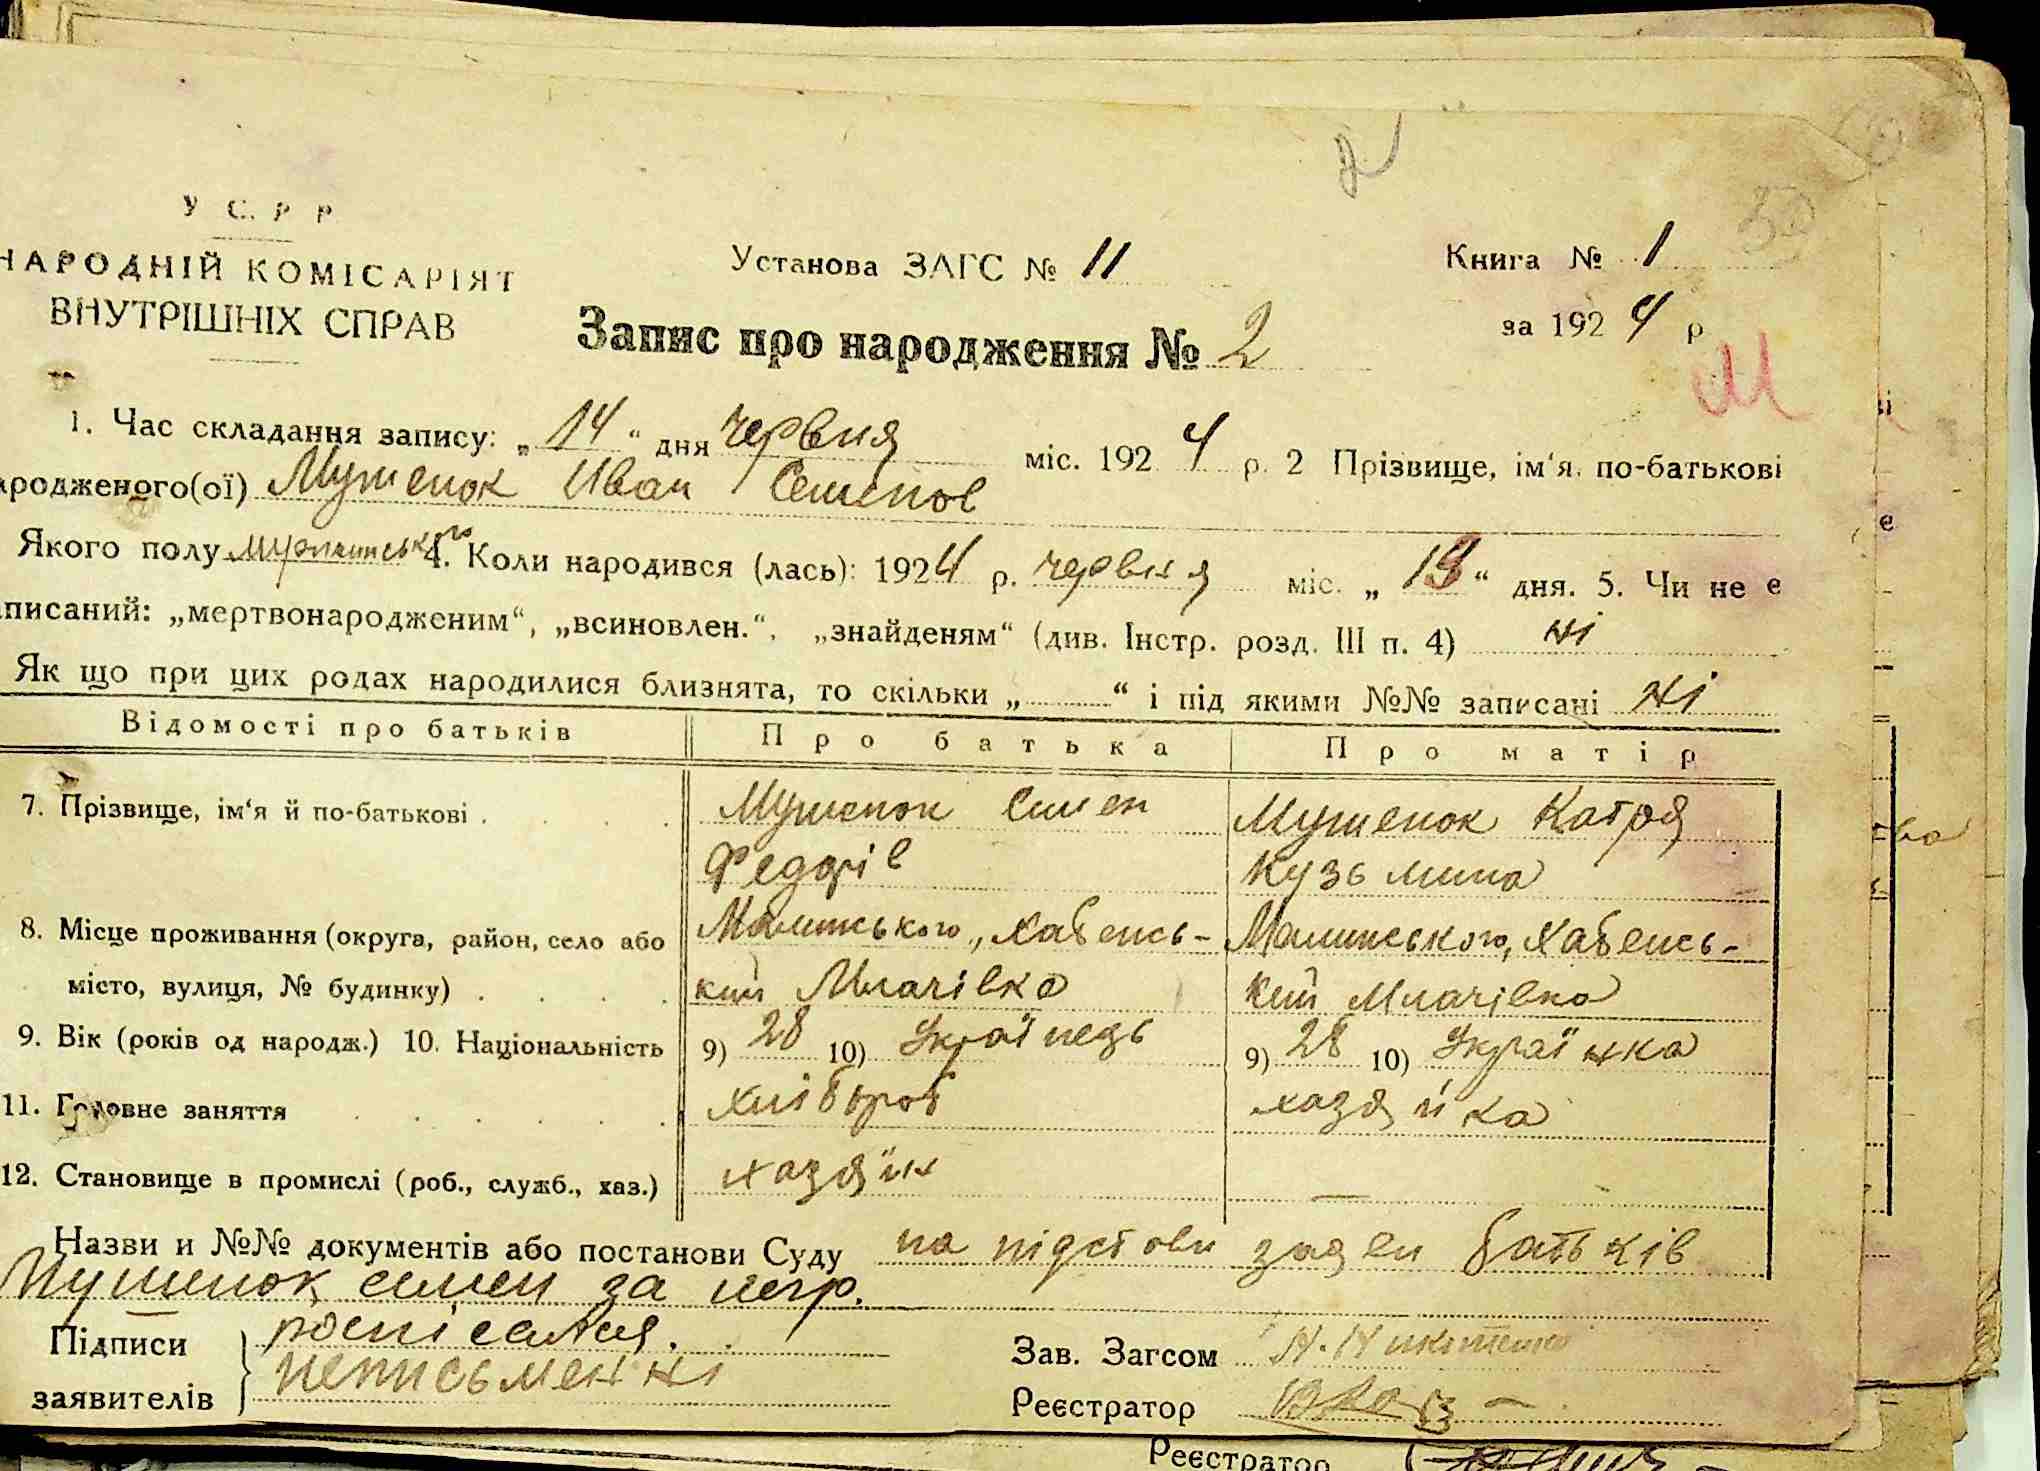 У С. Р Р
НАРОДНІЙ КОМІСАРІЯТ
ВНУТРІШНІХ СПРАВ
Установа ЗАГС № 11
Книга № 1
за 1924 р
Запис про народження № 2
М
1. Час складання запису: „14“ дня червня міс. 1924 р. 2 Прізвище, ім‘я, по-батькові
ародженого(ої) Мушенок Иван Семенов
Якого полу мужчинського 4. Коли народився (лась): 1924 р. червня міс. „13“ дня. 5. Чи не є
писаний: „мертвонародженим“, „всиновлен.“, „знайденям“ (див. Інстр. розд. III п. 4) ні
Як що при цих родах народилися близнята, то скільки „ “ і під якими №№ записані ні
Відомості про батьків Про батька Про матір
7. Прізвище, ім‘я й по-батькові . Мушенок Симен Мушенок Катря
Федорів Кузьмина
8. Місце проживання (округа, район, село або Малинського, Хабенсь- Малинського, Хабенсь-
місто, вулиця, № будинку) . кий Млачівка кий Млачівка
9. Вік (років од народж.) 10. Національність 9) 28 10) Українець 9) 28 10) Українка
11. Головне заняття хлібороб хазяйка
12. Становище в промислі (роб., служб., хаз.) хазяїн —
Назви и №№ документів або постанови Суду на підстови заяви батьків
Мушенок симен за негр.
Підписи росписался.
заявителів неписьменні
Зав. Загсом Н. Никитенко
Реєстратор
Реєстратор